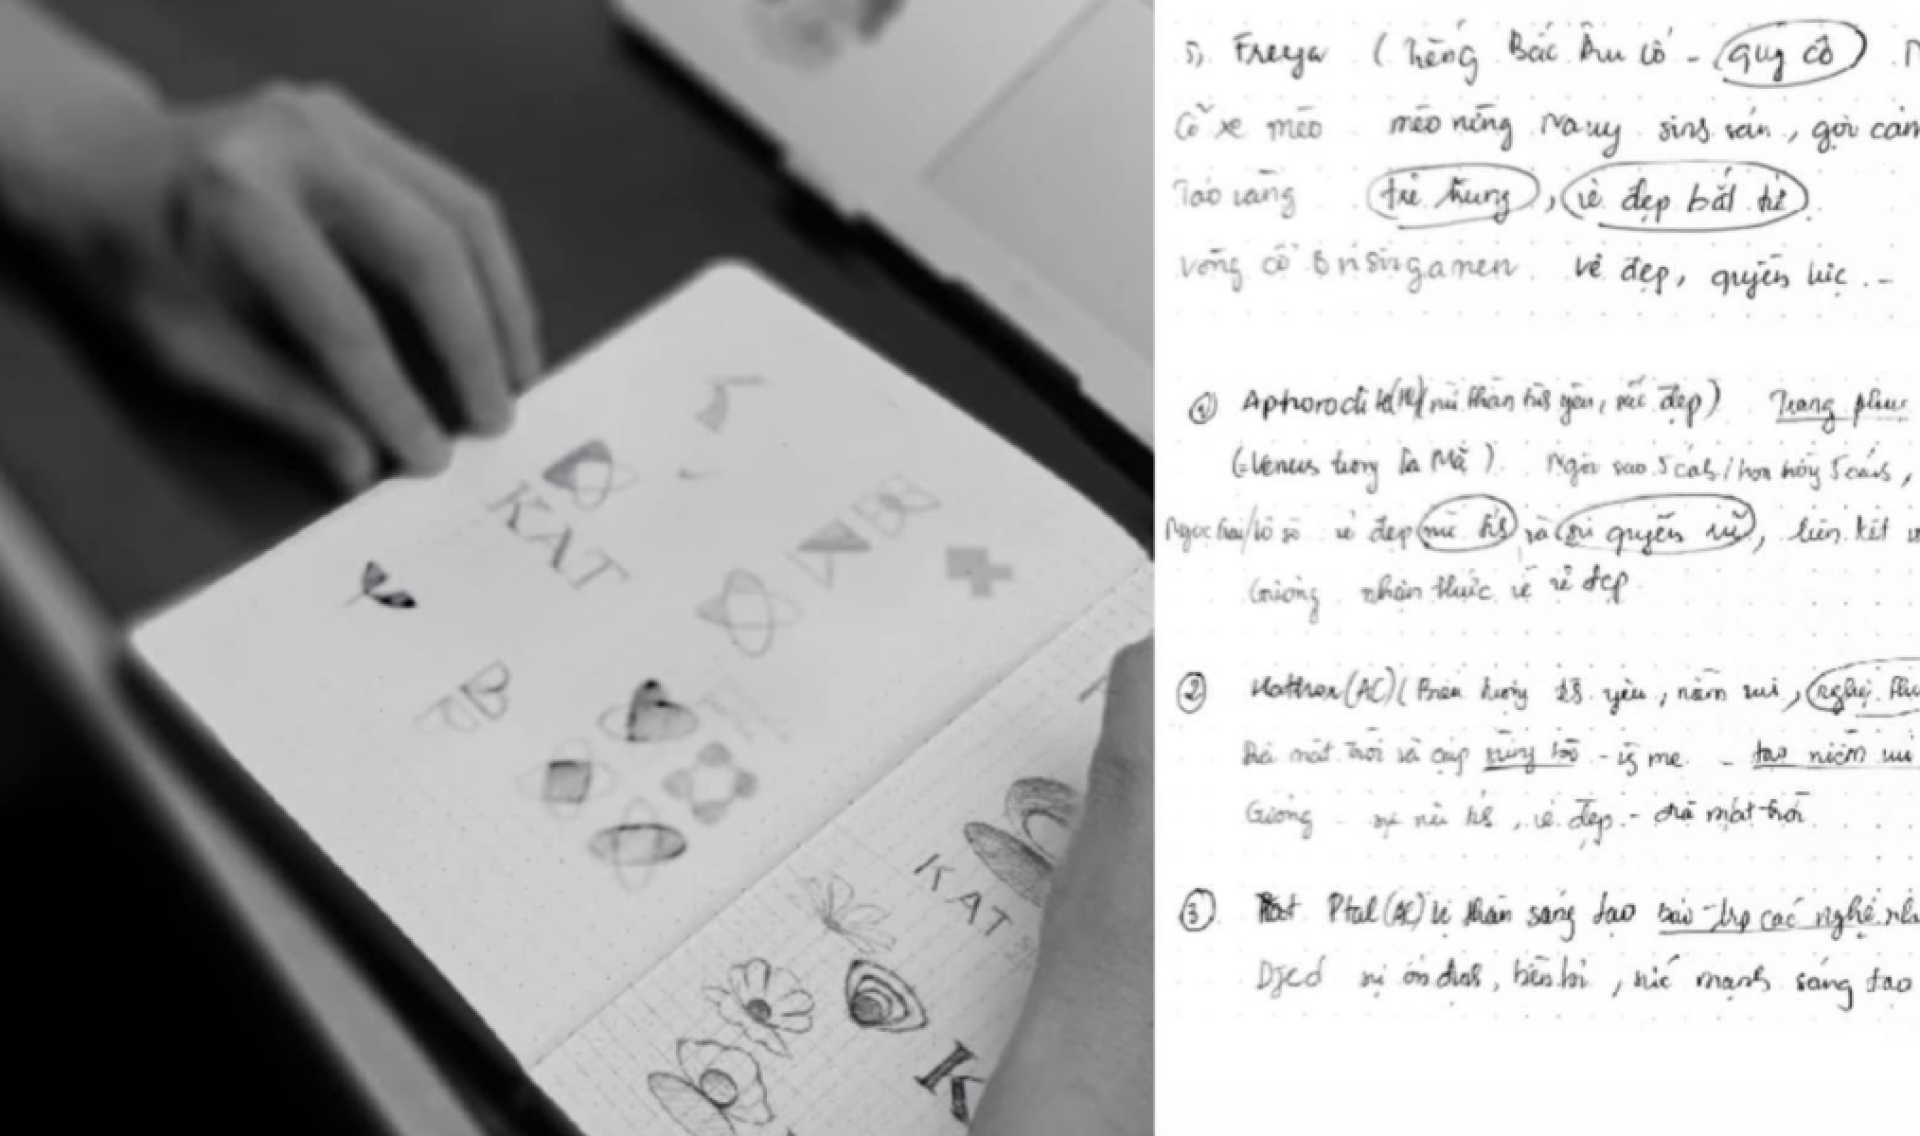 KAT
B
KAT
K
5). Freya (Tiếng Bắc Âu cổ - quý cô
Cỗ xe mèo mèo rừng Nauy sinh sản, gợi cảm
Táo vàng trẻ trung, vẻ đẹp bất tử
vòng cổ Brisingamen. vẻ đẹp, quyền lực. -
① Aphorodite (HL) nữ thần tình yêu, sắc đẹp) Trang phục
(=Venus trong La Mã). Ngôi sao 5 cánh / hoa hồng 5 cánh,
Ngọc trai / vỏ sò vẻ đẹp nữ tính và sự quyến rũ, liên kết
Gương nhận thức về vẻ đẹp
② Hathor (AC) ( Biểu tượng tình yêu, niềm vui,
Đĩa mặt trời và cặp sừng bò - mẹ - tạo niềm vui
Gương - sự nữ tính, vẻ đẹp. - đĩa mặt trời
③ Ptal (AC) vị thần sáng tạo bảo trợ các nghệ
Djed sự ổn định, bền bỉ, sức mạnh sáng tạo